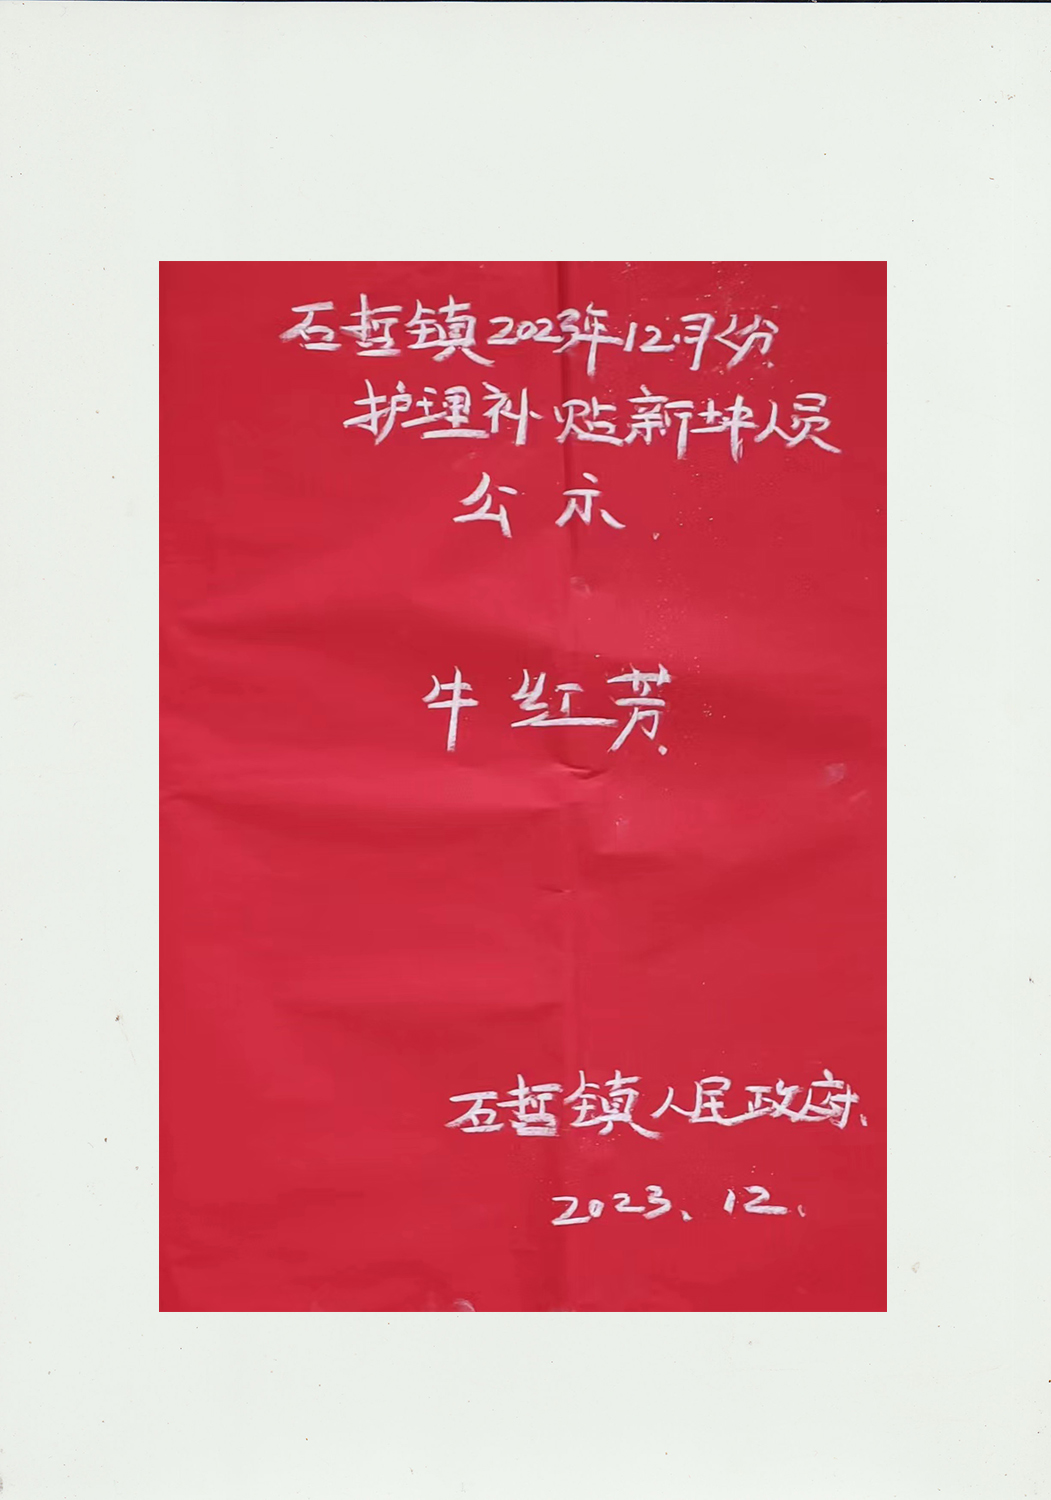 石哲镇2023年12月份
护理补贴新增人员
公示
牛红芳
石哲镇人民政府
2023、12、